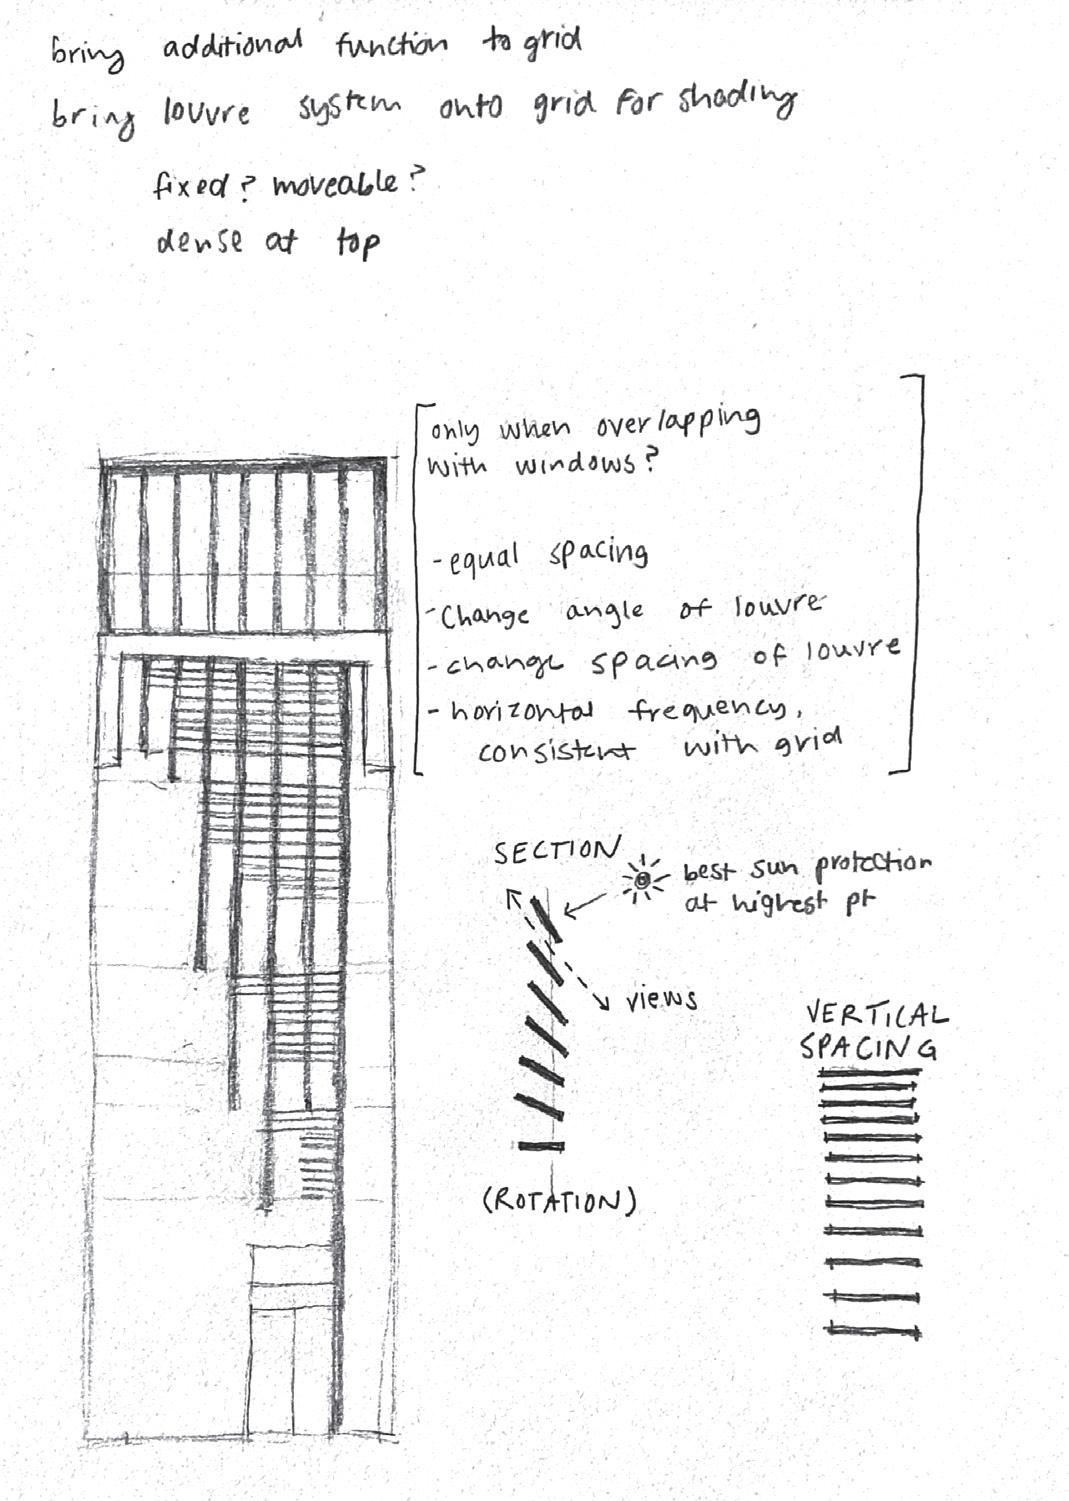 bring additional function to grid
bring louvre system onto grid for shading
fixed? moveable?
dense at top
only when overlapping
with windows?
-equal spacing
-Change angle of louvre
-change spacing of louvre
-horizontal frequency,
consistent with grid
SECTION
best sun protection
at highest pt
views
VERTICAL
SPACING
(ROTATION)